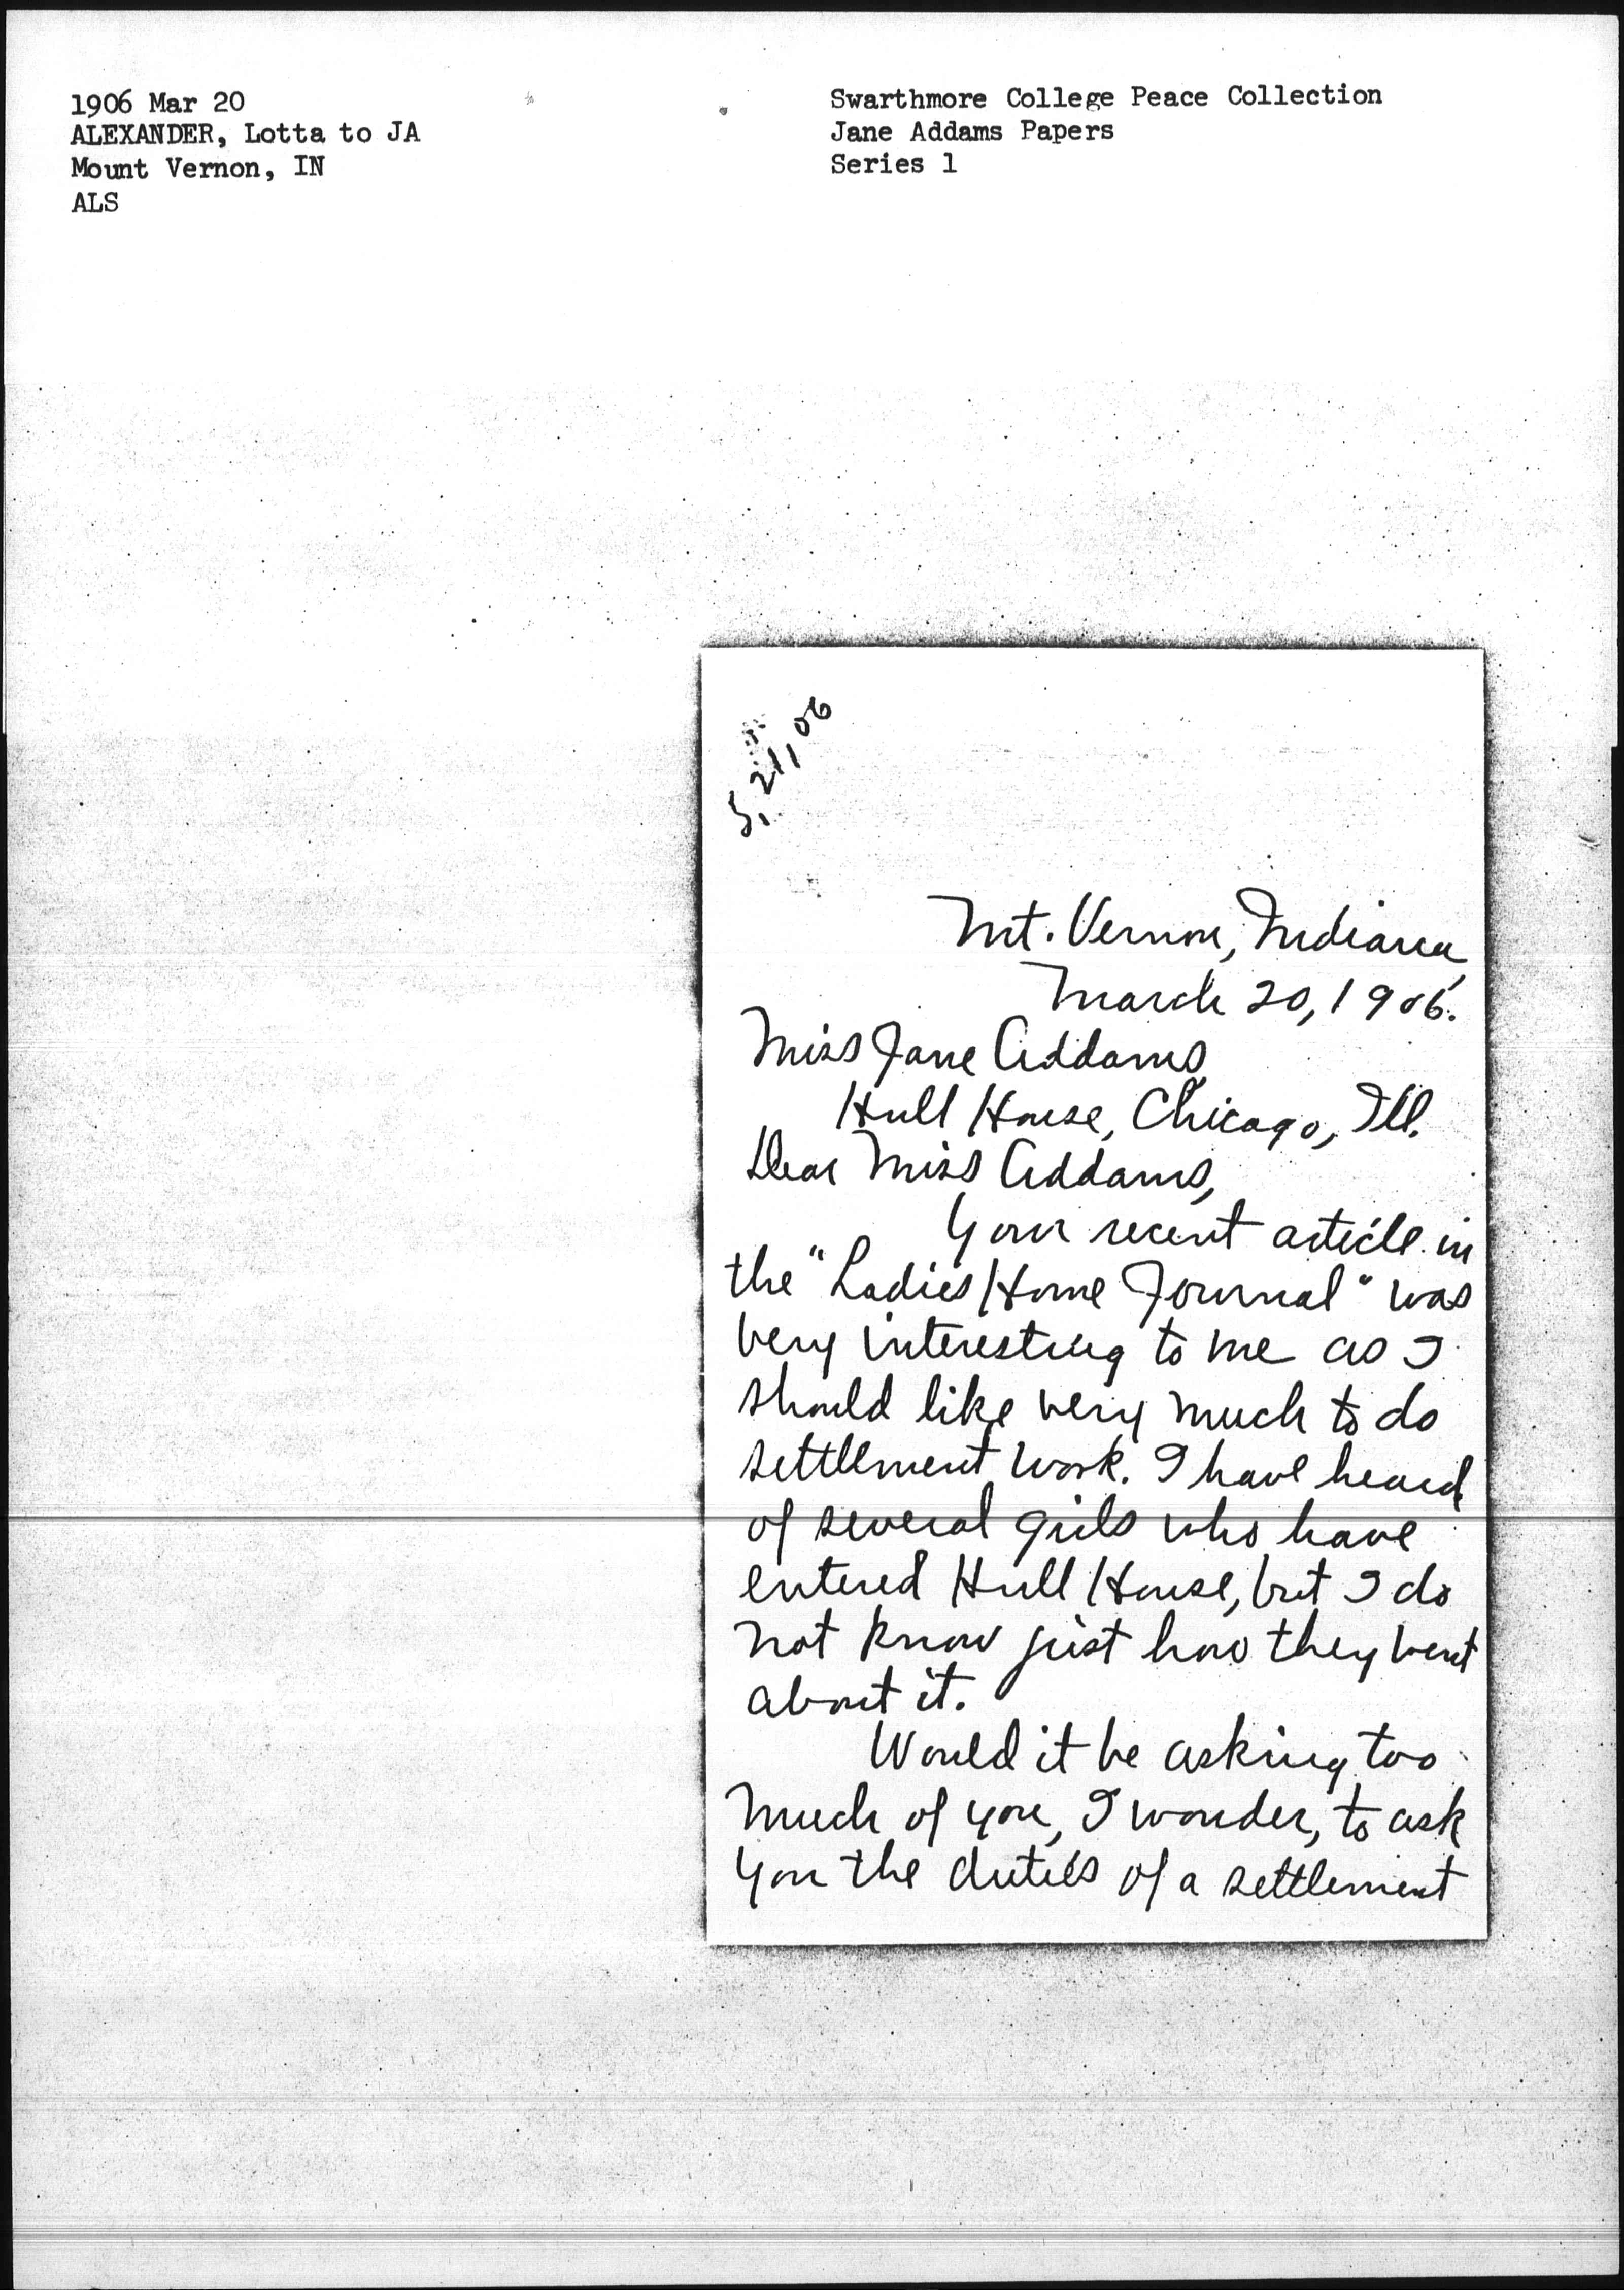 1906 Mar 20
ALEXANDER, Lotta to JA
Mount Vernon, IN
ALS
Swarthmore College Peace Collection
Jane Addams Papers
Series 1
5, 21, 06
Mt. Vernon, Indiana,
March 20, 1906.
Miss Jane Addams,
Hull House, Chicago, Ill.
Dear Miss Addams,
Your recent article in
the "Ladies Home Journal" was
very interesting to me as I
should like very much to do
settlement work. I have heard
of several girls who have
entered Hull House, but I do
not know just how they went
about it.
Would it be asking too
much of you, I wonder, to ask
you the duties of a settlement